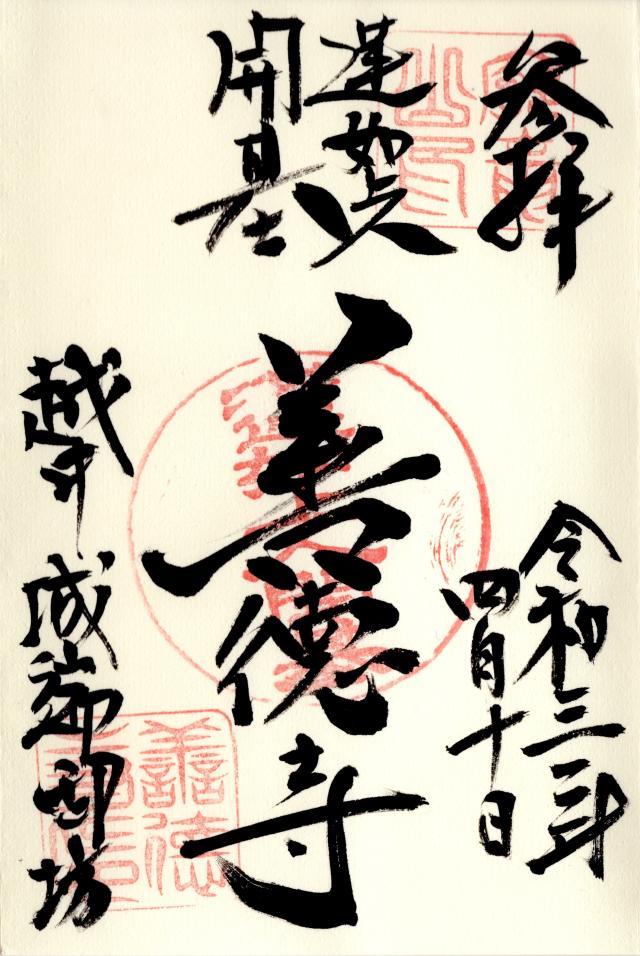 参拝
蓮如上人
開基
善徳寺
令和三年
四月十日
越中 城端御坊